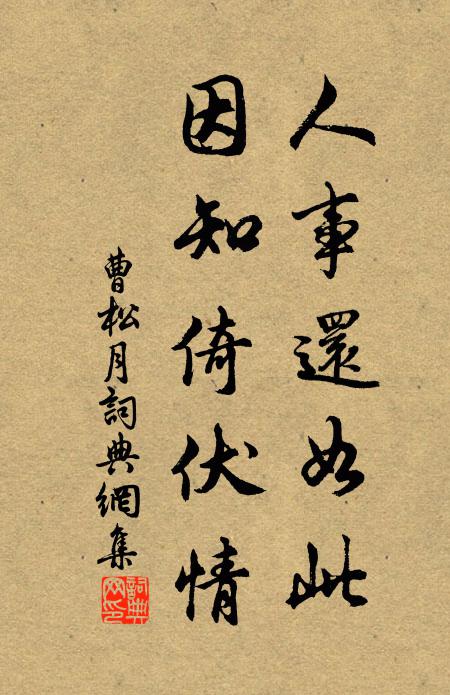 人事還如此
因知倚伏情
曹松月詞典網集
詞典網印